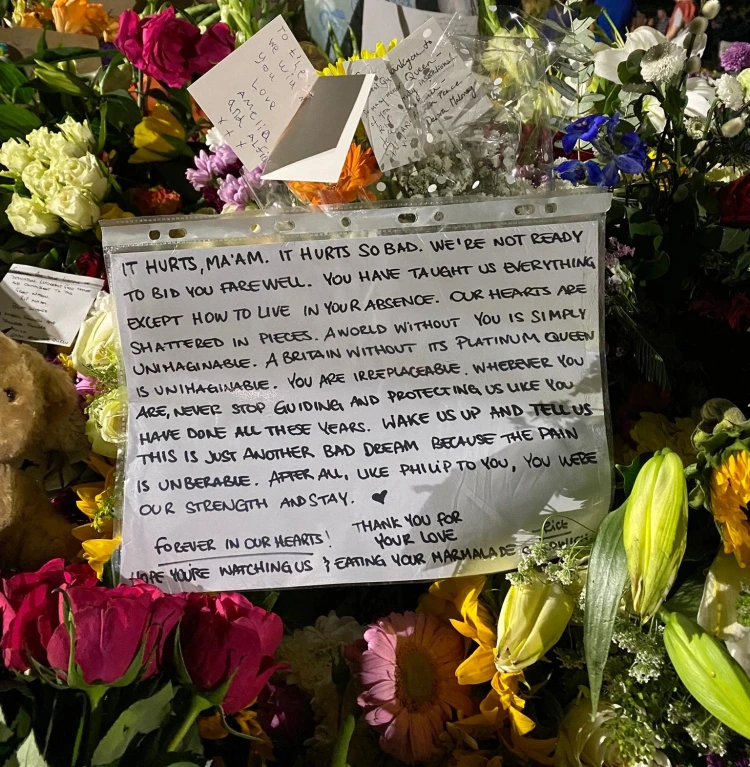 To the
you
Love
Amelia
and Alfie
x x x
Queen
IT HURTS, MA'AM. IT HURTS SO BAD. WE'RE NOT READY
TO BID YOU FAREWELL. YOU HAVE TAUGHT US EVERYTHING
EXCEPT HOW TO LIVE IN YOUR ABSENCE. OUR HEARTS ARE
SHATTERED IN PIECES. A WORLD WITHOUT YOU IS SIMPLY
UNIMAGINABLE. A BRITAIN WITHOUT ITS PLATINUM QUEEN
IS UNIMAGINABLE. YOU ARE IRREPLACEABLE. WHEREVER YOU
ARE, NEVER STOP GUIDING AND PROTECTING US LIKE YOU
HAVE DONE ALL THESE YEARS. WAKE US UP AND TELL US
THIS IS JUST ANOTHER BAD DREAM BECAUSE THE PAIN
IS UNBERABLE. AFTER ALL, LIKE PHILIP TO YOU, YOU WERE
OUR STRENGTH AND STAY. ♥
FOREVER IN OUR HEARTS!
THANK YOU FOR
YOUR LOVE
HOPE YOU'RE WATCHING US & EATING YOUR MARMALADE